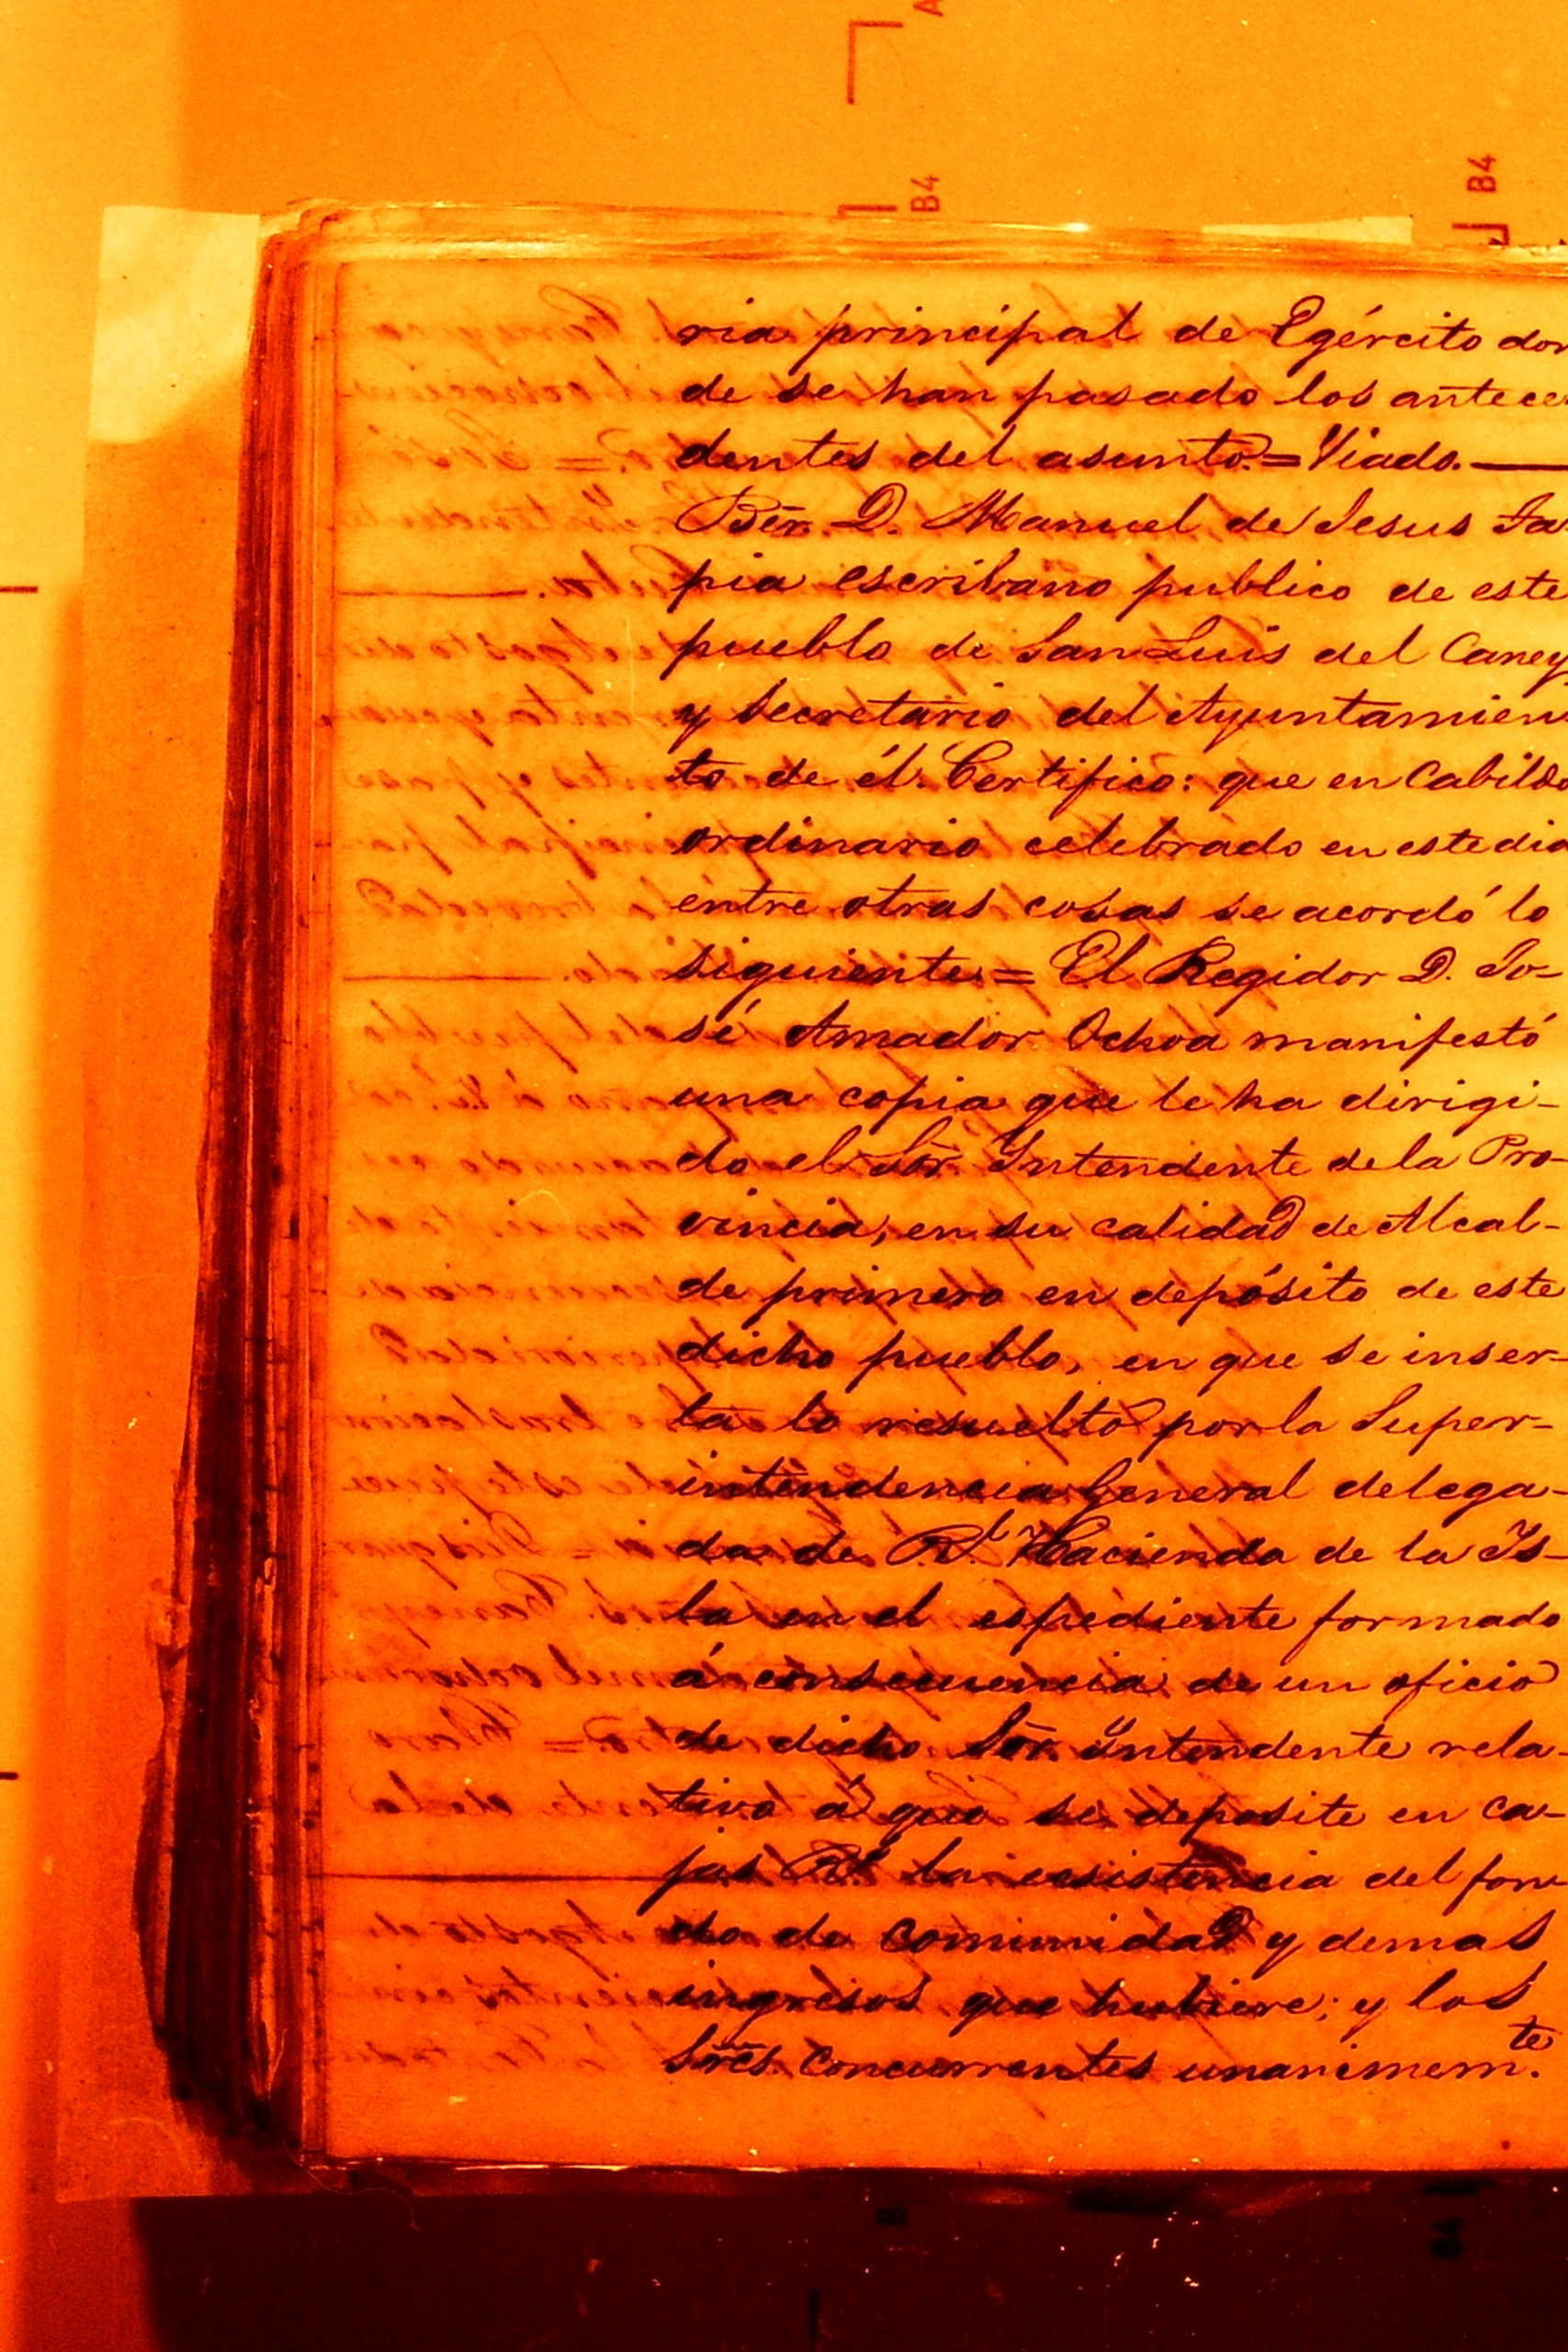 A
B4
B4
ria principal de Egército don
de se han pasado los antece
dentes del asunto.=Viado.
Bēr. D. Manuel de Jesus Ta
pia escribano publico de este
pueblo de San Luis del Caney
y Secretario del Ayuntamien
to de él. Certifico: que en Cabildo
ordinario celebrado en este dia
entre otras cosas se acordó lo
siguiente.= El Regidor D. Jo-
sé Amador Ochoa manifestó
una copia que le ha dirigi-
do el Sōr. Yntendente de la Pro-
vincia, en su calidad de Alcal-
de primero en depósito de este
dicho pueblo, en que se inser-
ta lo resuelto por la Super-
intendencia General delega-
da de Rl. Hacienda de la Ys-
la en el espediente formado
á consecuencia de un oficio
de dicho Sōr. Yntendente rela-
tivo á que se deposite en ca-
jas Rs. la ecsistencia del fon
do de comunidad y demas
ingresos que hubiere; y los
Srēs. concurrentes unanimemte.
B4